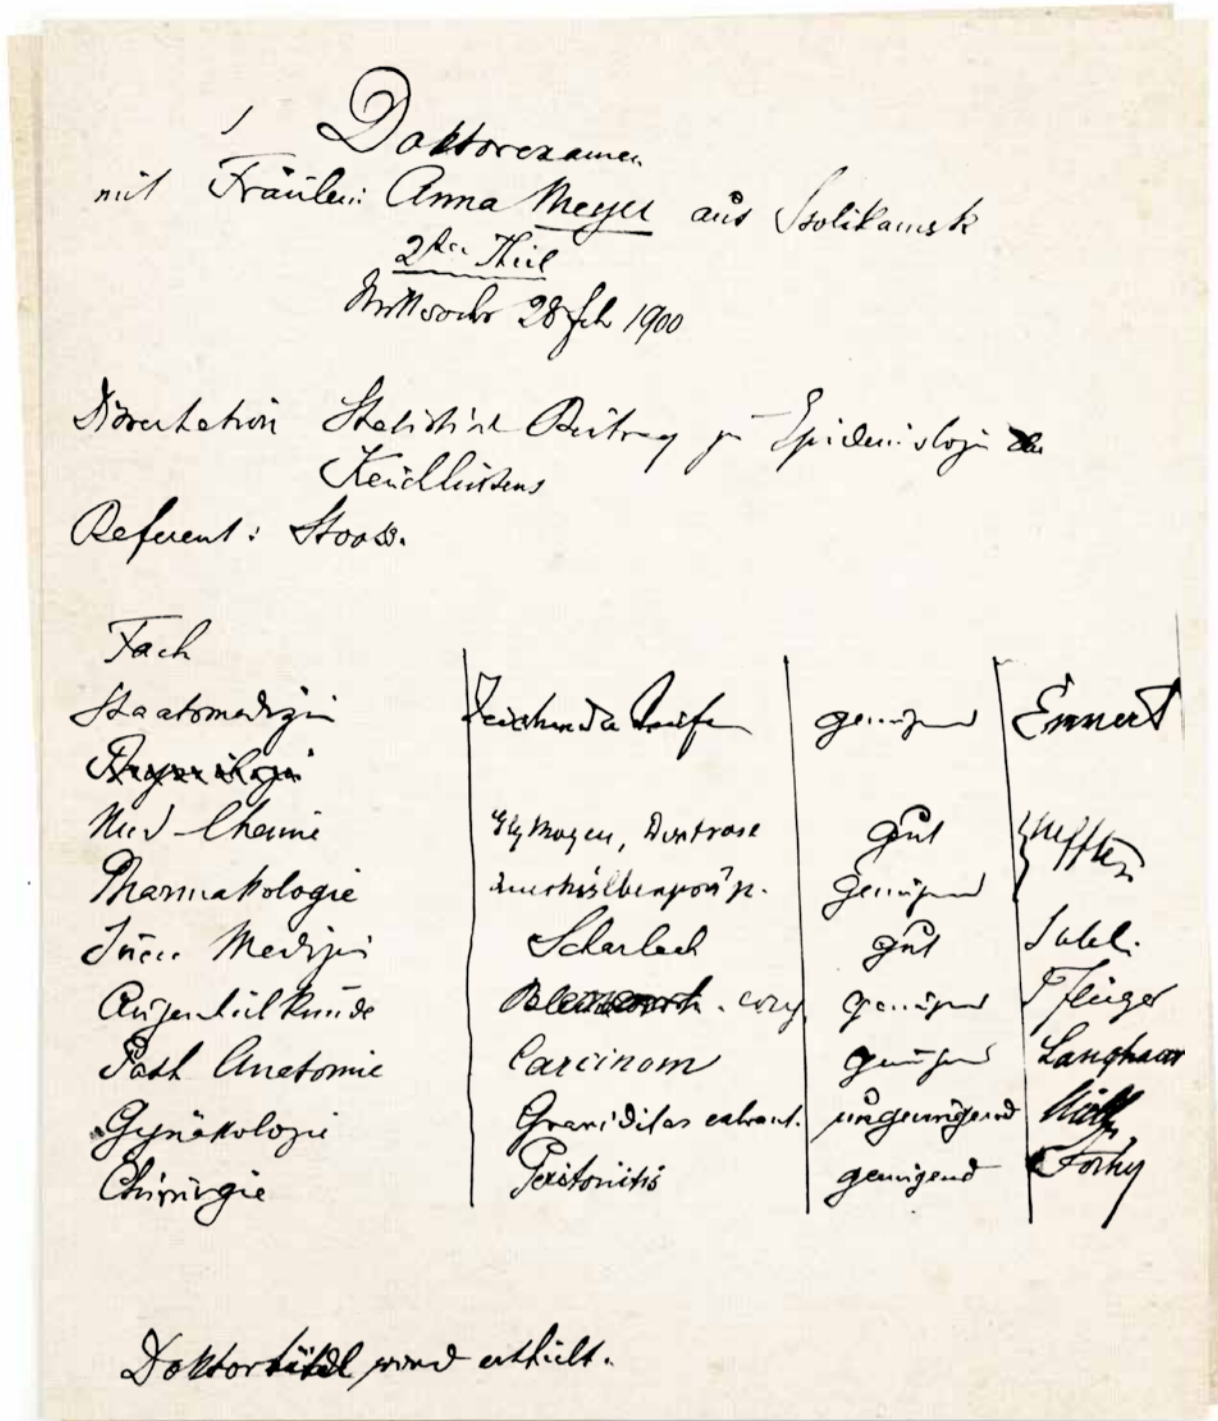 Doktorexamen
mit Fräulein Anna Meyer aus Ssolikamsk
2ter Theil
Mittwoch 28 Feb 1900
Dissertation Statistisch Beitrag zu Epidemiologie des
Keuchhustens
Referent: Stooss.
Fach
Staatsmedizin genügend Emmert
Med-Chemie Glykogen, Dextrose gut
Pharmakologie Quecksilberpräp. genügend Heffter
Innere Medizin Scharlach gut Sahli.
Augenheilkunde genügend Pflüger
Path Anatomie Carcinom genügend Langhans
Gynäkologie Graviditas extraut. ungenügend Müller
Chirurgie Peritonitis genügend
Doktortitel wird ertheilt.